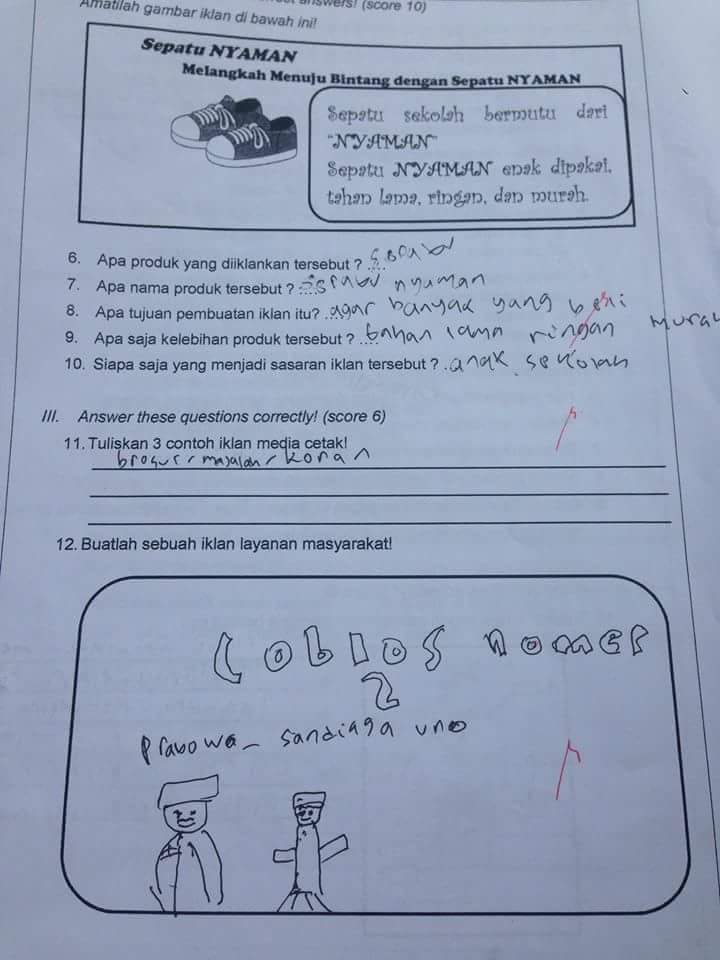 answers! (score 10)
Amatilah gambar iklan di bawah ini!
Sepatu NYAMAN
Melangkah Menuju Bintang dengan Sepatu NYAMAN
Sepatu sekolah bermutu dari
"NYAMAN"
Sepatu NYAMAN enak dipakai,
tahan lama, ringan, dan murah.
6. Apa produk yang diiklankan tersebut ?
7. Apa nama produk tersebut ? nyaman
8. Apa tujuan pembuatan iklan itu? agar banyak yang beli
9. Apa saja kelebihan produk tersebut ? tahan lama ringan murah
10. Siapa saja yang menjadi sasaran iklan tersebut ? anak sekolah
III. Answer these questions correctly! (score 6)
11. Tuliskan 3 contoh iklan media cetak!
brosur, majalah, koran
12. Buatlah sebuah iklan layanan masyarakat!
Coblos nomer
2
Prabowo - sandiaga uno